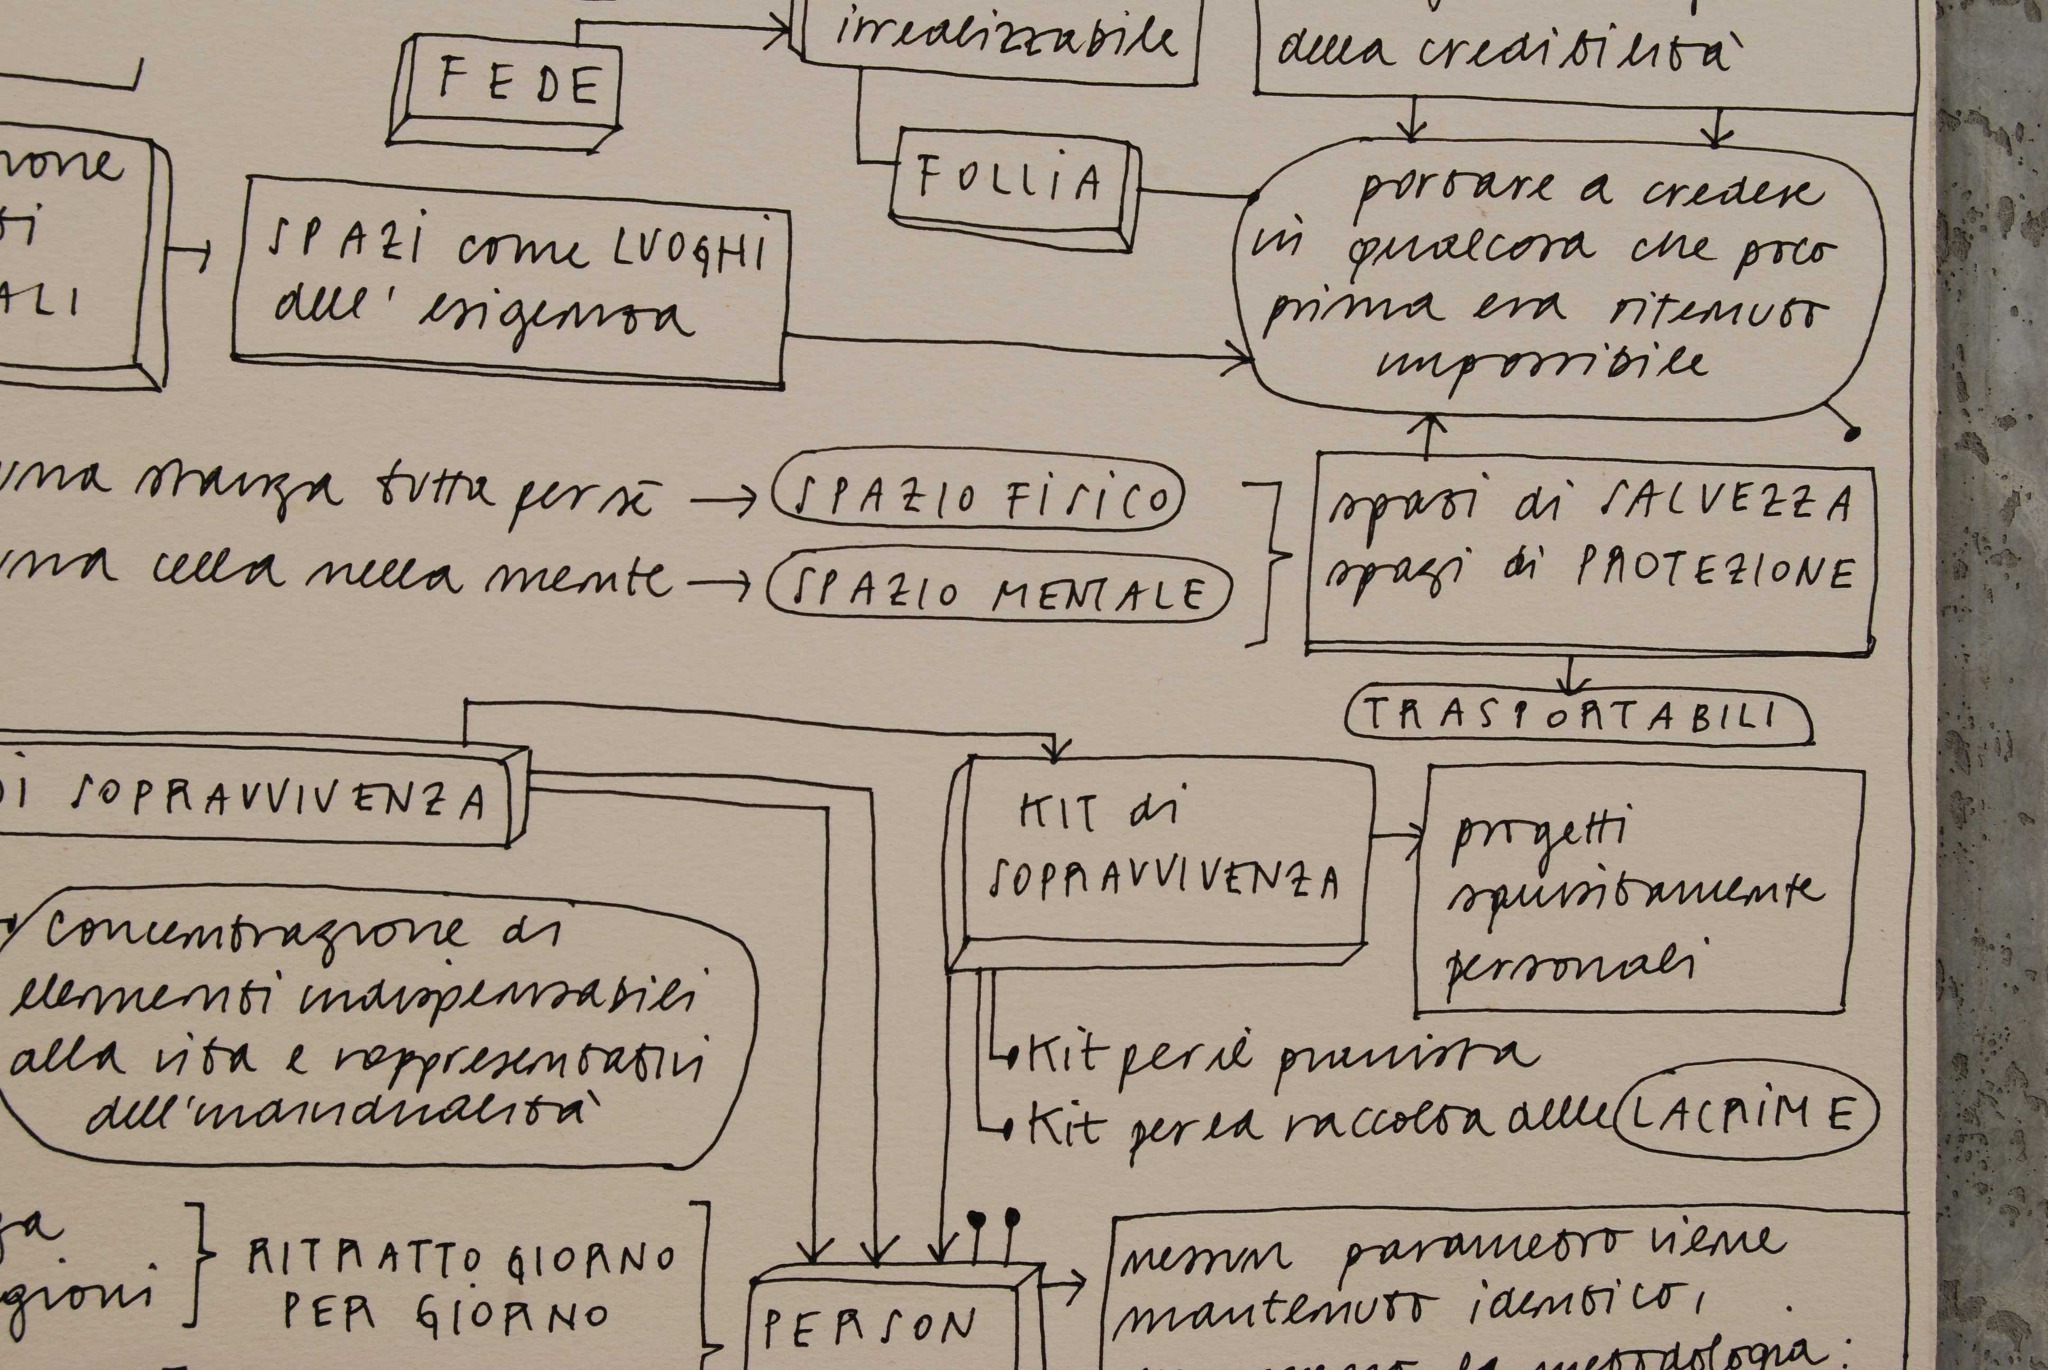 irrealizzabile
della credibilità
FEDE
FOLLIA
portare a credere
in qualcosa che poco
prima era ritenuto
impossibile
ALI
SPAZI come LUOGHI
dell'esigenza
una stanza tutta per sé
SPAZIO FISICO
una cella nella mente
SPAZIO MENTALE
spazi di SALVEZZA
spazi di PROTEZIONE
TRASPORTABILI
DI SOPRAVVIVENZA
KIT di
SOPRAVVIVENZA
progetti
squisitamente
personali
concentrazione di
elementi indispensabili
alla vita e rappresentativi
dell'individualità
Kit per il pianista
Kit per la raccolta delle LACRIME
gioni
RITRATTO GIORNO
PER GIORNO
PERSON
nessun parametro viene
mantenuto identico,
la metodologia: